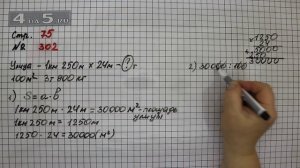 4 на 5.ru
Стр. 75
№ 302
Улица – 1км 250м х 24м – ? т
100м² 3т 800кг
1) S = a · b
1км 250м · 24м = 30000 м² – площадь
улицы
1км 250м = 1250м
1250 · 24 = 30000 (м²)
2) 30000 : 100
1250
24
5000
30000